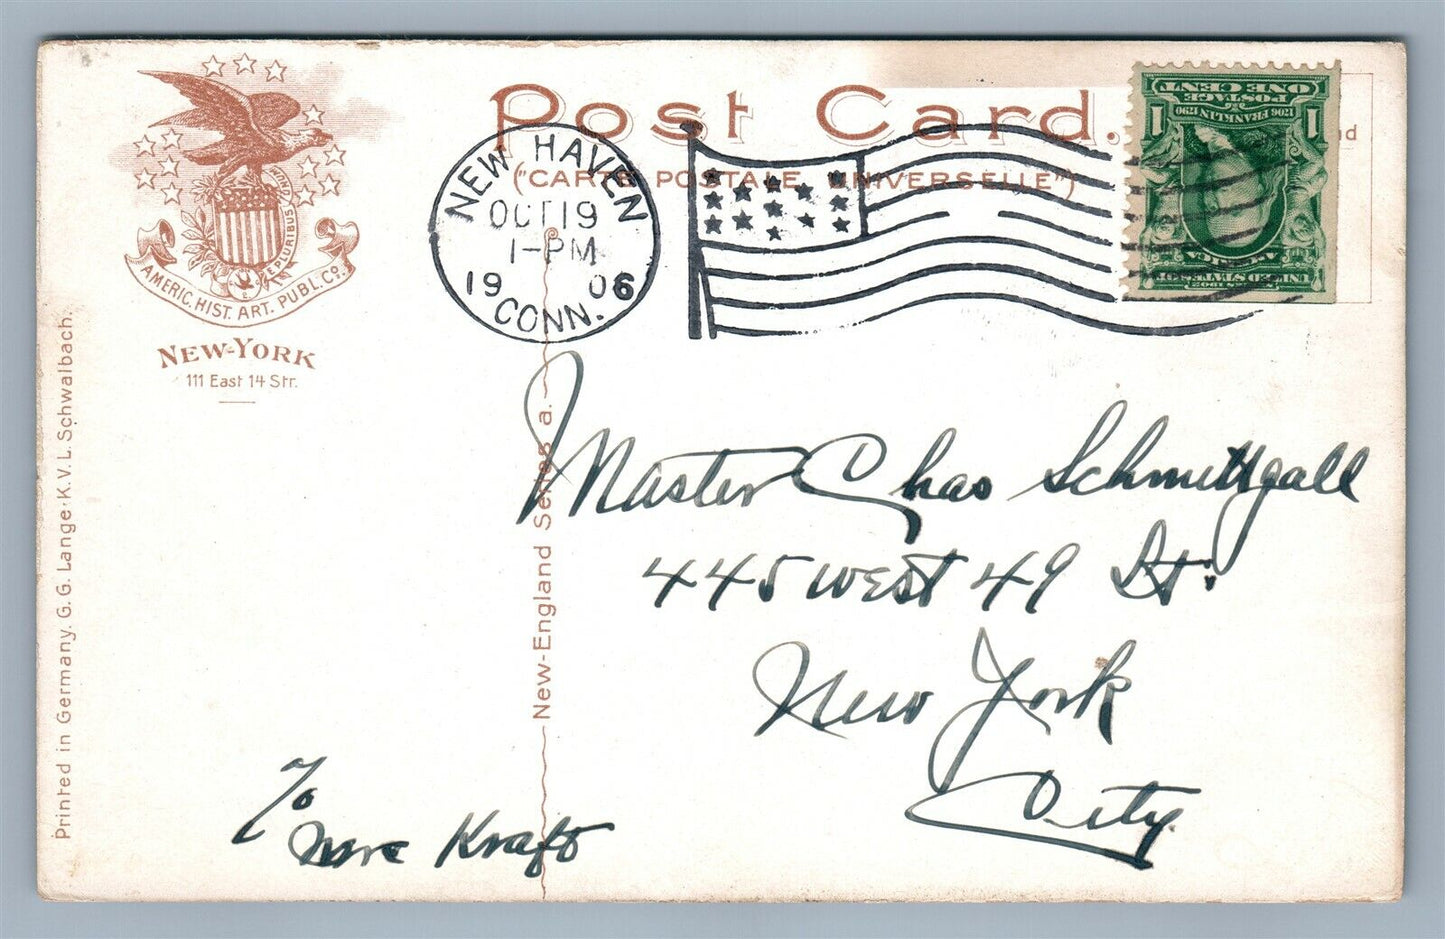 Post Card.
("CARTE POSTALE UNIVERSELLE")
NEW HAVEN
OCT 19
1-PM
1906
CONN.
ONE CENT
POSTAGE
1 1
1706 FRANKLIN 1790
SERIES 1902
UNITED STATES OF AMERICA
E PLURIBUS UNUM
AMERIC. HIST. ART. PUBL. Co.
NEW-YORK
111 East 14 Str.
Printed in Germany. G. G. Lange · K. V. L. Schwalbach.
New-England Series a.
Master Chas Schmittgall
445 West 49 St.
New York
City
To
Mrs Kraft